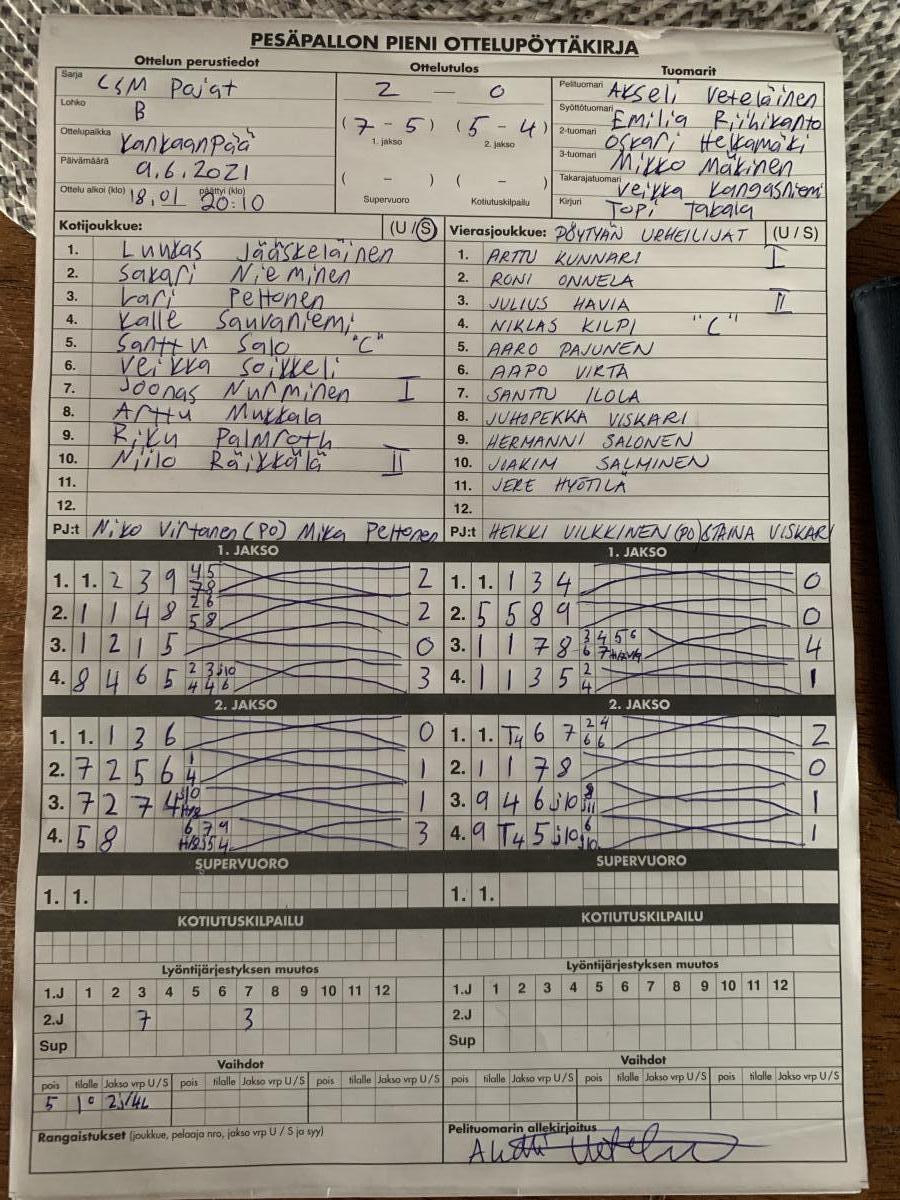 PESÄPALLON PIENI OTTELUPÖYTÄKIRJA
Ottelun perustiedot
Sarja LSM Pojat
Lohko B
Ottelupaikka Kankaanpää
Päivämäärä 9.6.2021
Ottelu alkoi (klo) 18.01 päättyi (klo) 20:10
Ottelutulos
2 — 0
(7 - 5) (5 - 4)
1. jakso 2. jakso
( - ) ( - )
Supervuoro Kotiutuskilpailu
Tuomarit
Pelituomari Akseli Veteläinen
Syöttötuomari Emilia Riihikanto
2-tuomari Oskari Helkamäki
3-tuomari Mikko Mäkinen
Takarajatuomari Veikka Kangasniemi
Kirjuri Topi Takala
Kotijoukkue: (U / S)
1. Luukas Jääskeläinen
2. Sakari Nieminen
3. Lari Peltonen
4. Kalle Sauvaniemi
5. Santtu Salo "C"
6. Veikka Soikkeli
7. Joonas Nurminen I
8. Arttu Mukkala
9. Riku Palmroth
10. Niilo Räikkälä II
11.
12.
PJ:t Niko Virtanen (PO) Mika Peltonen
Vierasjoukkue: PÖYTYÄN URHEILIJAT (U / S)
1. ARTTU KUNNARI I
2. RONI ONNELA
3. JULIUS HAVIA II
4. NIKLAS KILPI "C"
5. AARO PAJUNEN
6. AAPO VIRTA
7. SANTTU ILOLA
8. JUHOPEKKA VISKARI
9. HERMANNI SALONEN
10. JOAKIM SALMINEN
11. JERE HYÖTILÄ
12.
PJ:t HEIKKI VILKKINEN (PO) STAINA VISKARI
1. JAKSO
1. 1. 2 3 9 4 5 7 8 2
2. 1 1 4 8 2 6 5 8 2
3. 1 2 1 5 0
4. 8 4 6 5 2 3 j10 4 4 6 3
1. JAKSO
1. 1. 1 3 4 0
2. 5 5 8 9 0
3. 1 1 7 8 3 4 5 6 6 7 4
4. 1 1 3 5 2 4 1
2. JAKSO
1. 1. 1 3 6 0
2. 7 2 5 6 1 4 1
3. 7 2 7 4 j10 1
4. 5 8 6 7 9 j5 4 3
2. JAKSO
1. 1. T4 6 7 2 4 6 6 2
2. 1 1 7 8 0
3. 9 4 6 j10 j11 1
4. 9 T4 5 j10 6 j10 1
SUPERVUORO
1. 1.
SUPERVUORO
1. 1.
KOTIUTUSKILPAILU
KOTIUTUSKILPAILU
Lyöntijärjestyksen muutos
1.J 1 2 3 4 5 6 7 8 9 10 11 12
2.J 7 3
Sup
Lyöntijärjestyksen muutos
1.J 1 2 3 4 5 6 7 8 9 10 11 12
2.J
Sup
Vaihdot
pois tilalle Jakso vrp U / S pois tilalle Jakso vrp U / S pois tilalle Jakso vrp U / S
5 10 2j/4L
Vaihdot
pois tilalle Jakso vrp U / S pois tilalle Jakso vrp U / S pois tilalle Jakso vrp U / S
Rangaistukset (joukkue, pelaaja nro, jakso vrp U / S ja syy)
Pelituomarin allekirjoitus